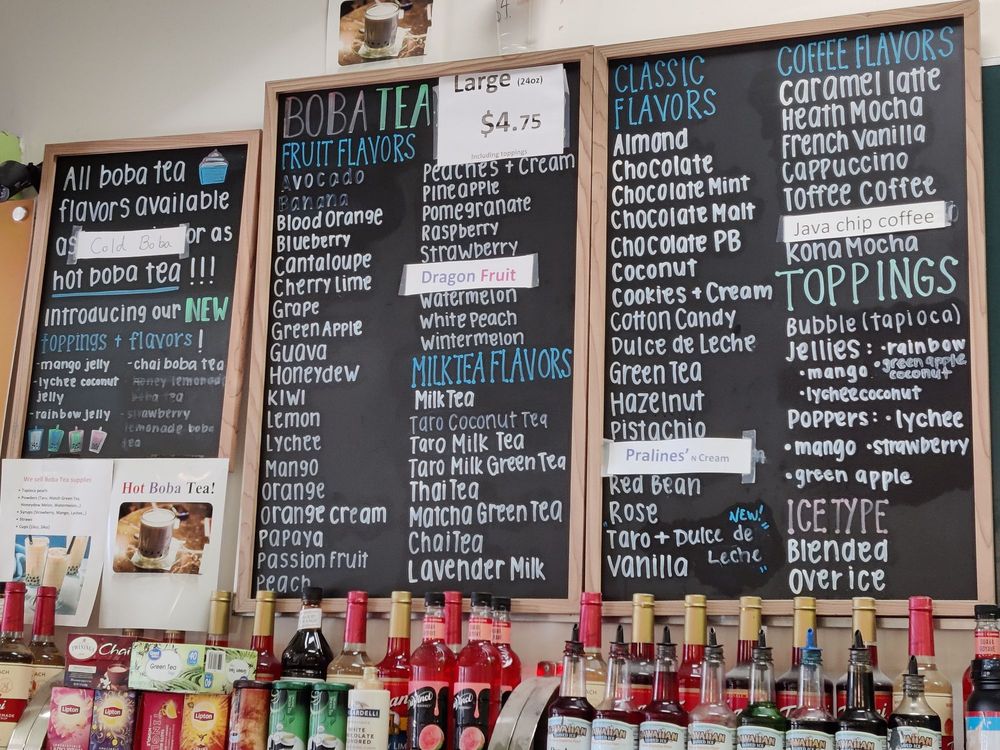 All boba tea
flavors available
as Cold Boba or as
hot boba tea !!!
Introducing our NEW
toppings + flavors!
-mango jelly
-lychee coconut
jelly
-rainbow jelly
-chai boba tea
-honey lemonade
boba tea
-strawberry
lemonade boba
tea
We sell Boba Tea supplies
Hot Boba Tea!
BOBA TEA
Large (24oz)
$4.75
Including toppings
FRUIT FLAVORS
Avocado
Banana
Blood Orange
Blueberry
Cantaloupe
Cherry lime
Grape
Green Apple
Guava
Honeydew
Kiwi
Lemon
Lychee
Mango
Orange
Orange cream
Papaya
Passion Fruit
Peach
Peaches + Cream
Pineapple
Pomegranate
Raspberry
Strawberry
Dragon Fruit
Watermelon
White Peach
Wintermelon
MILKTEA FLAVORS
Milk Tea
Taro Coconut Tea
Taro Milk Tea
Taro Milk Green Tea
Thai Tea
Matcha Green Tea
Chai Tea
Lavender Milk
CLASSIC
FLAVORS
Almond
Chocolate
Chocolate Mint
Chocolate Malt
Chocolate PB
Coconut
Cookies + Cream
Cotton Candy
Dulce de Leche
Green Tea
Hazelnut
Pistachio
Pralines' N Cream
Red Bean
Rose
Taro + Dulce de
Leche
NEW!
Vanilla
COFFEE FLAVORS
Caramel latte
Heath Mocha
French Vanilla
Cappuccino
Toffee Coffee
Java chip coffee
Kona Mocha
TOPPINGS
Bubble (tapioca)
Jellies: •rainbow
•mango •green apple
coconut
•lychee coconut
Poppers: •lychee
•mango •strawberry
•green apple
ICE TYPE
Blended
Over ice
TWININGS
Chai
Green Tea
Lipton
Lipton
Lipton